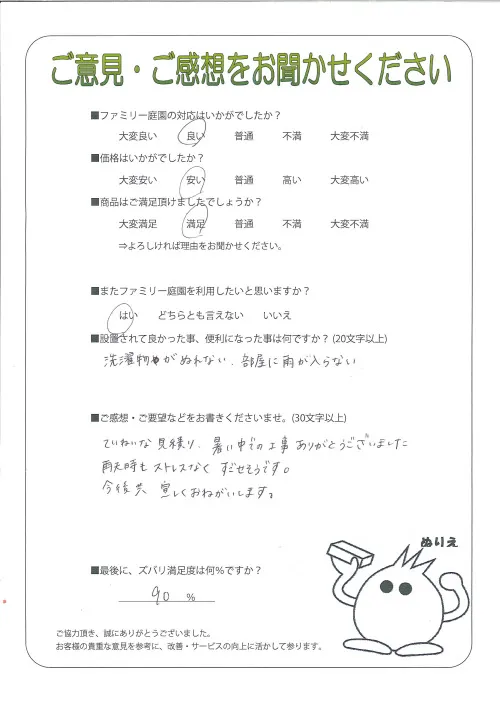 ご意見・ご感想をお聞かせください
■ファミリー庭園の対応はいかがでしたか？
大変良い 良い 普通 不満 大変不満
■価格はいかがでしたか？
大変安い 安い 普通 高い 大変高い
■商品はご満足頂けましたでしょうか？
大変満足 満足 普通 不満 大変不満
⇒よろしければ理由をお聞かせください。
■またファミリー庭園を利用したいと思いますか？
はい どちらとも言えない いいえ
■設置されて良かった事、便利になった事は何ですか？(20文字以上)
洗濯物がぬれない、部屋に雨が入らない
■ご感想・ご要望などをお書きくださいませ。(30文字以上)
ていねいな見積り、暑い中での工事ありがとうございました
雨天時もストレスなくすごせそうです。
今後共 宜しくおねがいします。
ぬりえ
■最後に、ズバリ満足度は何%ですか？
90 %
ご協力頂き、誠にありがとうございました。
お客様の貴重な意見を参考に、改善・サービスの向上に活かして参ります。